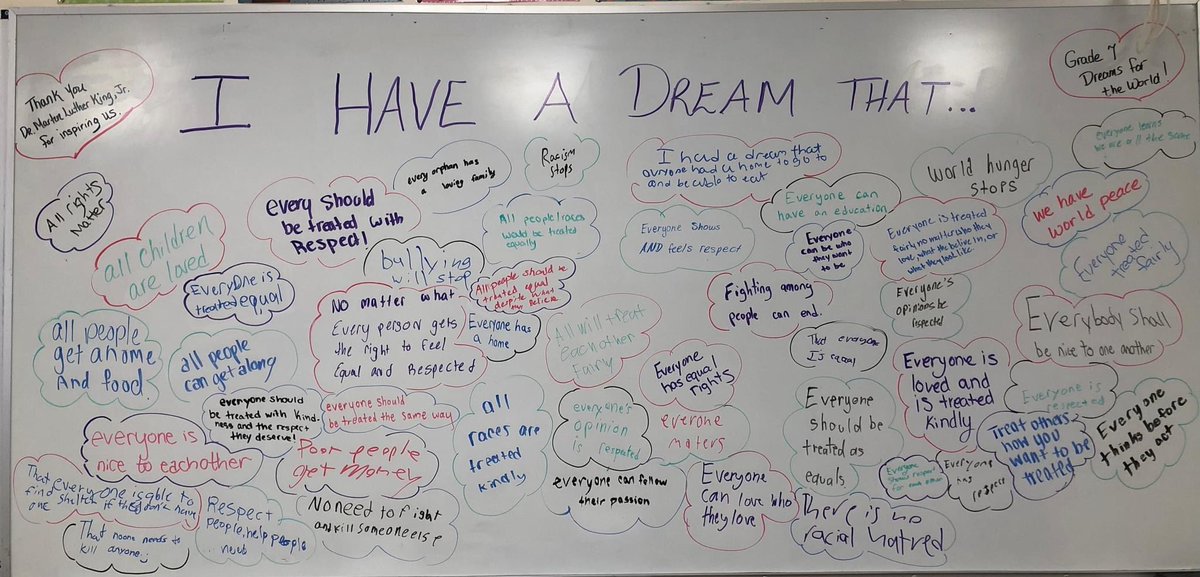 Thank You
Dr. Martin Luther King, Jr.
for inspiring us.
I HAVE A DREAM THAT...
Grade 7
Dreams for
the World!
All rights
Matter
all children
are loved
every should
be treated with
Respect!
every orphan has
a loving family
Racism
stops
I had a dream that
everyone had a home to go to
and be able to eat
Everyone can
have an education
world hunger
stops
everyone learns
we are all the same
we have
world peace
Everyone
treated
fairly
Everyone is treated
fairly no matter who they
love, what the believe in, or
what they look like
Everyone
can be who
they want
to be
Everyone shows
AND feels respect
All people/races
would be treated
equally
bullying
will stop
EveryOne is
treated equal
All people should be
treated equal
despite what
Everyone has
a home
No matter what
Every person gets
the right to feel
Equal and Respected
all people
get a home
And food.
all people
can get along
All will treat
each other
Fairy
Fighting among
people can end.
Everyone's
opinions be
respected
Everybody Shall
be nice to one another
That everyone
Is equal
Everyone
has equal
rights
Everyone is
loved and
is treated
kindly
Everyone is
respected
Everyone
thinks before
they act
Treat others
how you
want to be
treated
Everyone
has
respect
Everyone
should respect
for each other
Everyone
should be
treated as
equals
There is no
racial hatred
everone
maters
Everyone
can love who
they love
everyone's
opinion
is respected
everyone can follow
their passion
all
races are
treated
kindly
everyone should
be treated the same way
everyone should
be treated with kind-
ness and the respect
they deserve!
everyone is
nice to eachother
Poor people
get money
No need to fight
and kill someone else
Respect
people, help people
That everyone is able to
find shelter if they don't have
one
That noone needs to
kill anyone